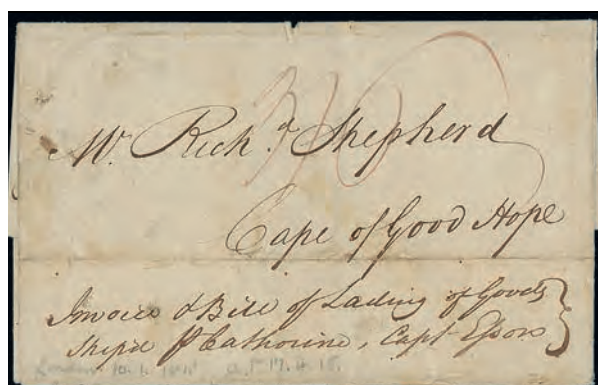 Mr. Richd. Shepherd
Cape of Good Hope
Invoice & Bill of Lading of Goods
Shipd pr Catharine, Capt